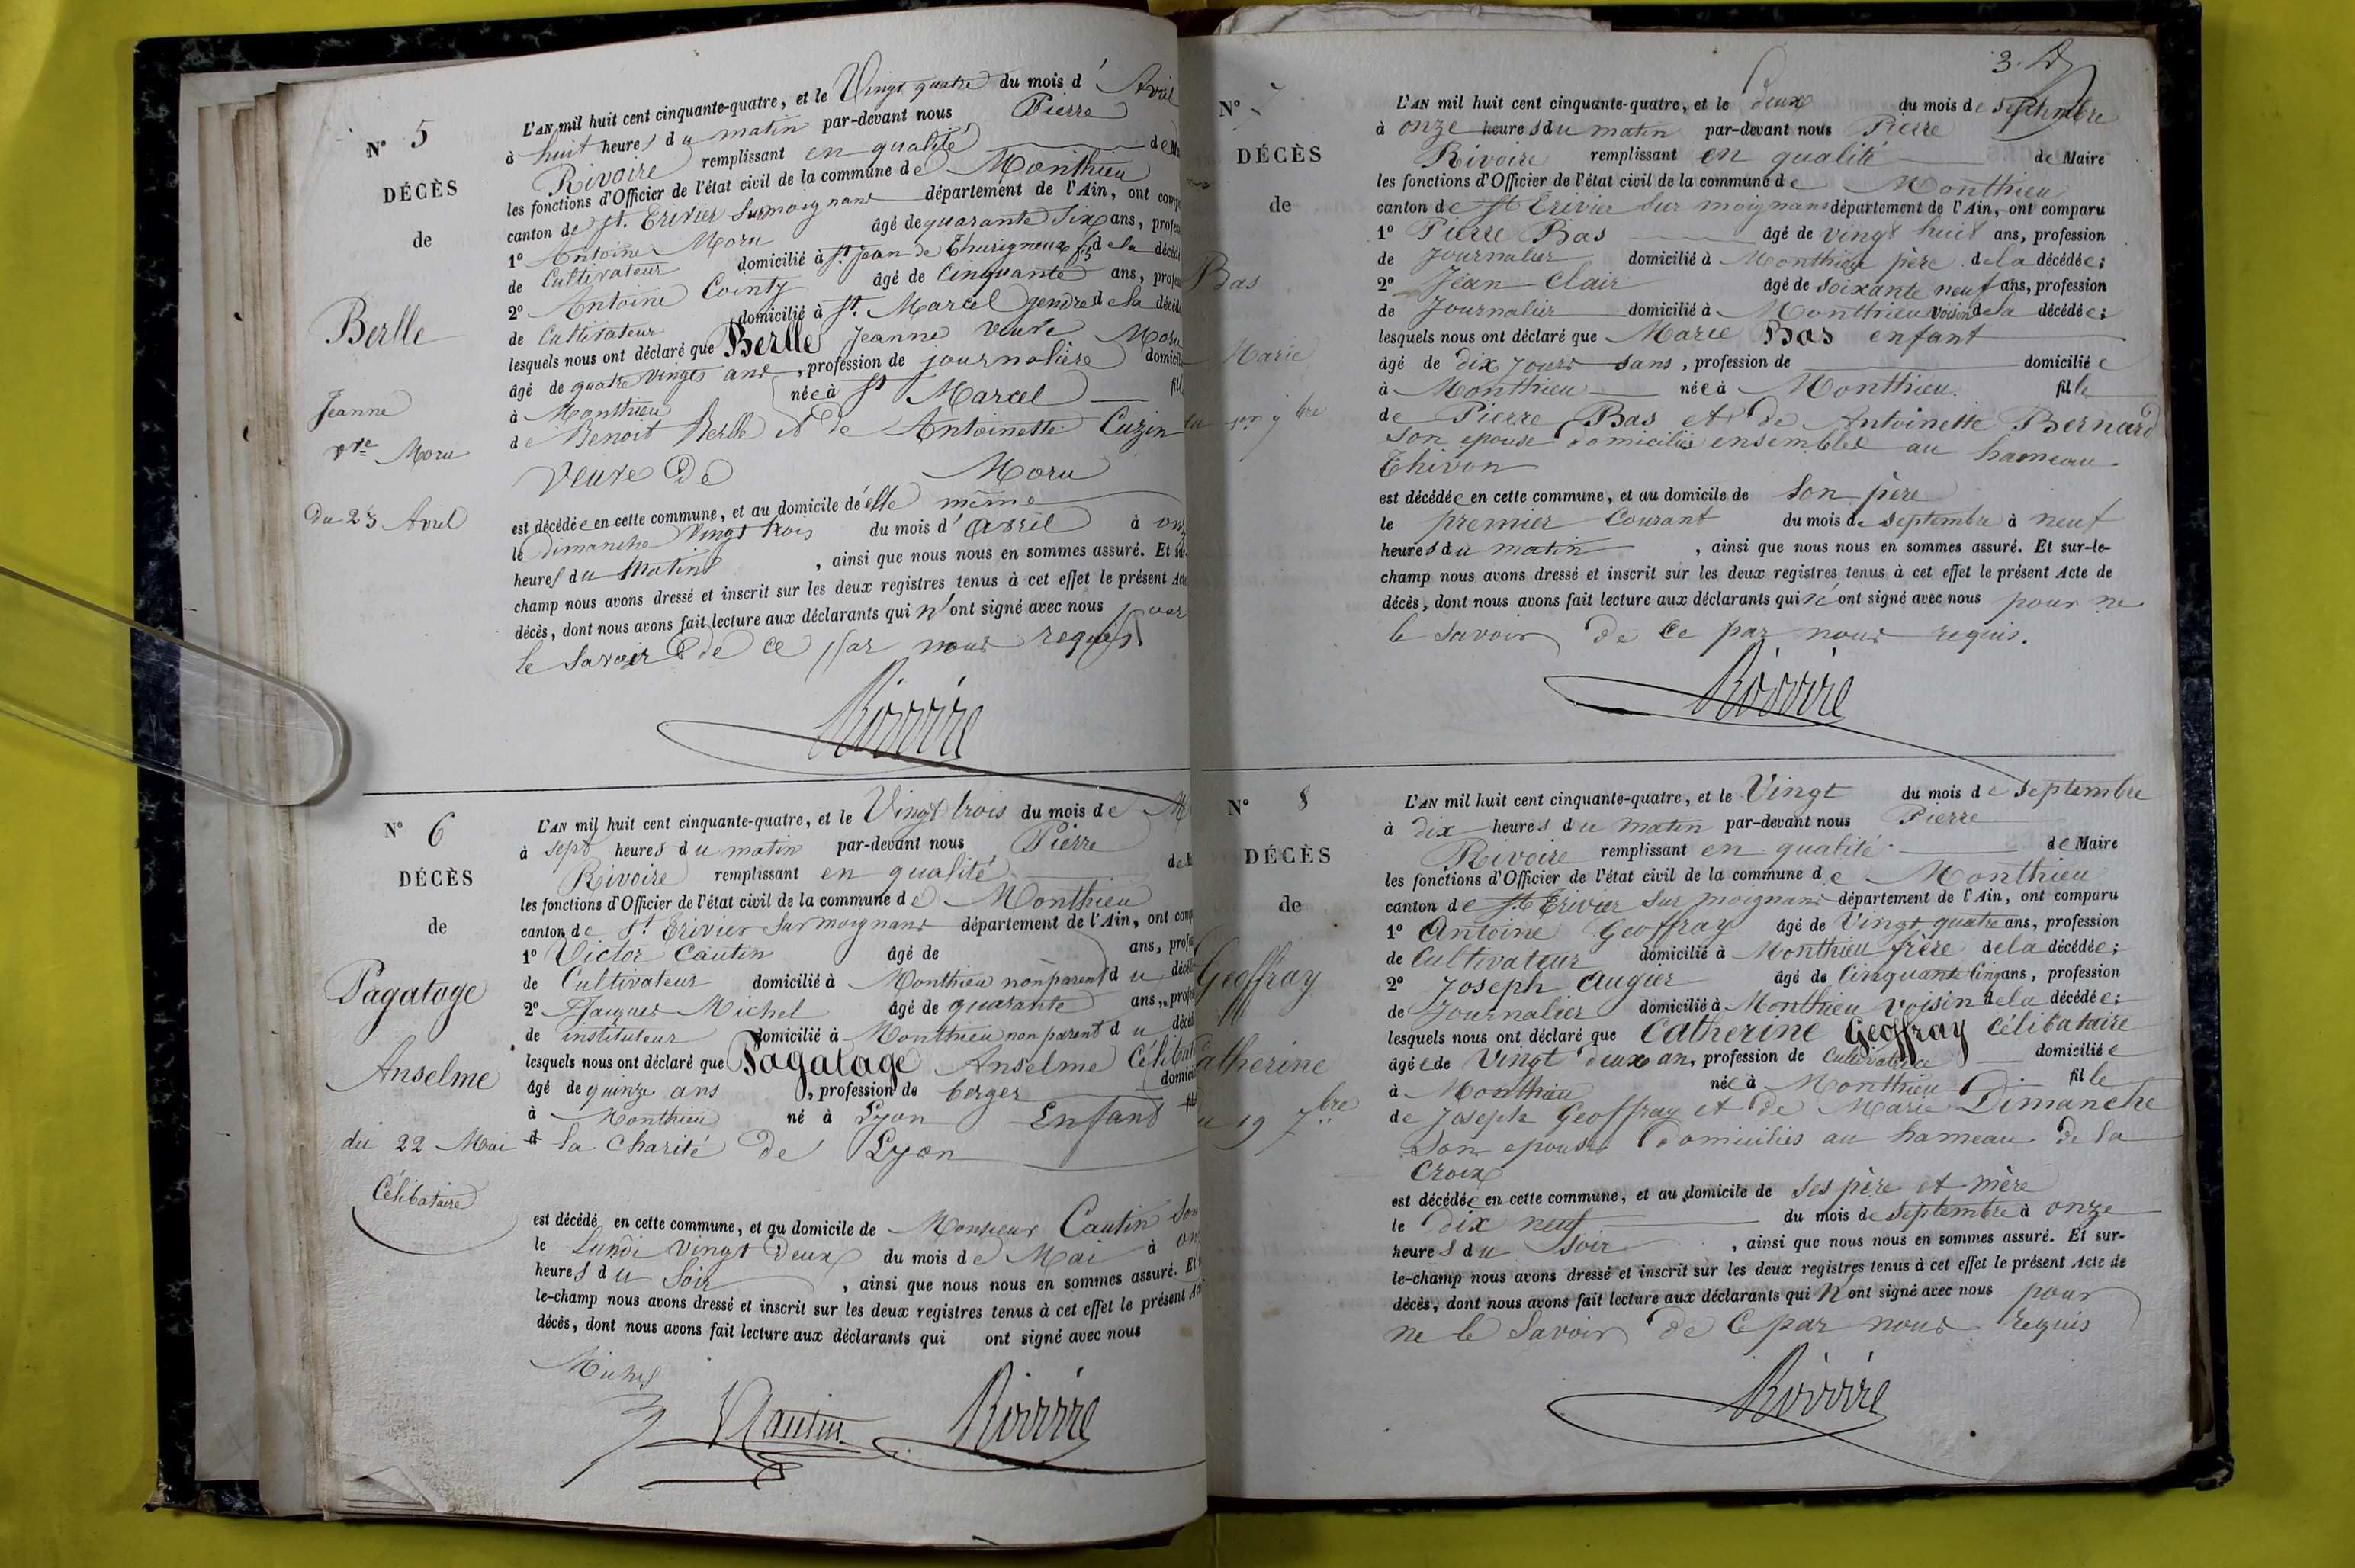 N° 5
DÉCÈS
de
Berlle
Jeanne
vve Moru
Du 23 Avril
L'AN mil huit cent cinquante-quatre, et le Vingt quatre du mois d' Avril
à huit heures du matin par-devant nous Pierre
Rivoire remplissant en qualité de M
les fonctions d'Officier de l'état civil de la commune de Monthieu
canton de St. Trivier Sur moignans département de l'Ain, ont comp
1° Antoine Moru âgé de quarante Six ans, profes
de Cultivateur domicilié à St Jean de Thurigneux fils de la décéd
2° Antoine Cointy âgé de Cinquante ans, profes
de Cultivateur domicilié à St. Marcel gendre de la décéd
lesquels nous ont déclaré que Berlle Jeanne veuve Moru
âgé de quatre vingts ans, profession de journalière domicil
à Monthieu née à St Marcel fil
de Benoit Berlle et de Antoinette Cuzin
Veuve De Moru
est décédée en cette commune, et au domicile de elle même
le Dimanche Vingt trois du mois d' Avril à onz
heures du Matin, ainsi que nous nous en sommes assuré. Et sur
champ nous avons dressé et inscrit sur les deux registres tenus à cet effet le présent Acte
décès, dont nous avons fait lecture aux déclarants qui n'ont signé avec nous pour
le Savoir de ce par nous requis
Rivoire
N° 6
DÉCÈS
de
Pagatage
Anselme
du 22 Mai
Célibataire
L'AN mil huit cent cinquante-quatre, et le Vingt trois du mois de M
à sept heures du matin par-devant nous Pierre
Rivoire remplissant en qualité de M
les fonctions d'Officier de l'état civil de la commune de Monthieu
canton de St Trivier Sur moignans département de l'Ain, ont comp
1° Victor Cautin âgé de ans, profes
de Cultivateur domicilié à Monthieu non parent du décéd
2° Jacques Michel âgé de quarante ans, profes
de instituteur domicilié à Monthieu non parent du décéd
lesquels nous ont déclaré que Pagatage Anselme Célibat
âgé de quinze ans, profession de berger domici
à Monthieu né à Lyon Enfant fil
d la Charité de Lyon
est décédé en cette commune, et au domicile de Monsieur Cautin Son
le Lundi vingt Deux du mois de Mai à on
heures du Soir, ainsi que nous nous en sommes assuré. Et
le-champ nous avons dressé et inscrit sur les deux registres tenus à cet effet le présent Act
décès, dont nous avons fait lecture aux déclarants qui ont signé avec nous
Michel
VCautin
Rivoire
3.
N° 7
DÉCÈS
de
Bas
Marie
du 1er 7bre
L'AN mil huit cent cinquante-quatre, et le deux du mois de Septembre
à onze heures du matin par-devant nous Pierre
Rivoire remplissant en qualité de Maire
les fonctions d'Officier de l'état civil de la commune de Monthieu
canton de St Trivier Sur moignans département de l'Ain, ont comparu
1° Pierre Bas âgé de vingt huit ans, profession
de Journalier domicilié à Monthieu père de la décédée;
2° Jean Clair âgé de soixante neuf ans, profession
de Journalier domicilié à Monthieu voisin de la décédée;
lesquels nous ont déclaré que Marie Bas enfant
âgé de dix Jours sans, profession de domiciliée
à Monthieu née à Monthieu fille
de Pierre Bas et de Antoinette Bernard
Son epouse domiciliés ensembles au hameau
Thivon
est décédée en cette commune, et au domicile de Son père
le premier Courant du mois de septembre à neuf
heures du matin, ainsi que nous nous en sommes assuré. Et sur-le-
champ nous avons dressé et inscrit sur les deux registres tenus à cet effet le présent Acte de
décès, dont nous avons fait lecture aux déclarants qui n'ont signé avec nous pour ne
le Savoir de Ce par nous requis.
Rivoire
N° 8
DÉCÈS
de
Geoffray
atherine
u 19 7bre
L'AN mil huit cent cinquante-quatre, et le Vingt du mois de Septembre
à dix heures du matin par-devant nous Pierre
Rivoire remplissant en qualité de Maire
les fonctions d'Officier de l'état civil de la commune de Monthieu
canton de St Trivier Sur moignans département de l'Ain, ont comparu
1° Antoine Geoffray âgé de Vingt quatre ans, profession
de Cultivateur domicilié à Monthieu frère de la décédée;
2° Joseph Augier âgé de Cinquante Cinq ans, profession
de Journalier domicilié à Monthieu Voisin de la décédée;
lesquels nous ont déclaré que Catherine Geoffray Célibataire
âgée de Vingt deux an, profession de Cultivatrice domiciliée
à Monthieu née à Monthieu fille
de Joseph Geoffray et de Marie Dimanche
Son epouse Domiciliés au hameau de la
Croix
est décédée en cette commune, et au domicile de Ses père et mère
le Dix neuf du mois de Septembre à onze
heures du Soir, ainsi que nous nous en sommes assuré. Et sur-
le-champ nous avons dressé et inscrit sur les deux registres tenus à cet effet le présent Acte de
décès, dont nous avons fait lecture aux déclarants qui n'ont signé avec nous pour
ne le Savoir de Ce par nous requis
Rivoire